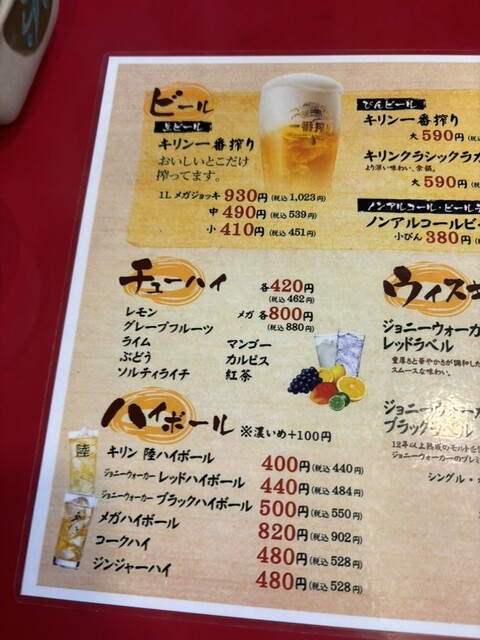 ビール
生ビール
キリン一番搾り
おいしいとこだけ
搾ってます。
1L メガジョッキ 930円(税込 1,023円)
中 490円(税込 539円)
小 410円(税込 451円)
一番搾り
びんビール
キリン一番搾り
大 590円
キリンクラシックラガ
より深い味わい、余韻。
大 590円
ノンアルコール・ビール
ノンアルコールビー
小びん 380円
チューハイ
各 420円
(税込 462円)
メガ 各 800円
(税込 880円)
レモン
グレープフルーツ
ライム
ぶどう
ソルティライチ
マンゴー
カルピス
紅茶
ウィスキ
ジョニーウォーカ
レッドラベル
豊厚さと華やかさが調和した
スムースな味わい。
ジョニーウォーカ
ブラックラベル
12年以上熟成のモルトを
ジョニーウォーカーのプレミ
シングル・
ハイボール ※濃いめ+100円
陸
キリン 陸ハイボール 400円(税込 440円)
ジョニーウォーカー レッドハイボール 440円(税込 484円)
ジョニーウォーカー ブラックハイボール 500円(税込 550円)
メガハイボール 820円(税込 902円)
コークハイ 480円(税込 528円)
ジンジャーハイ 480円(税込 528円)